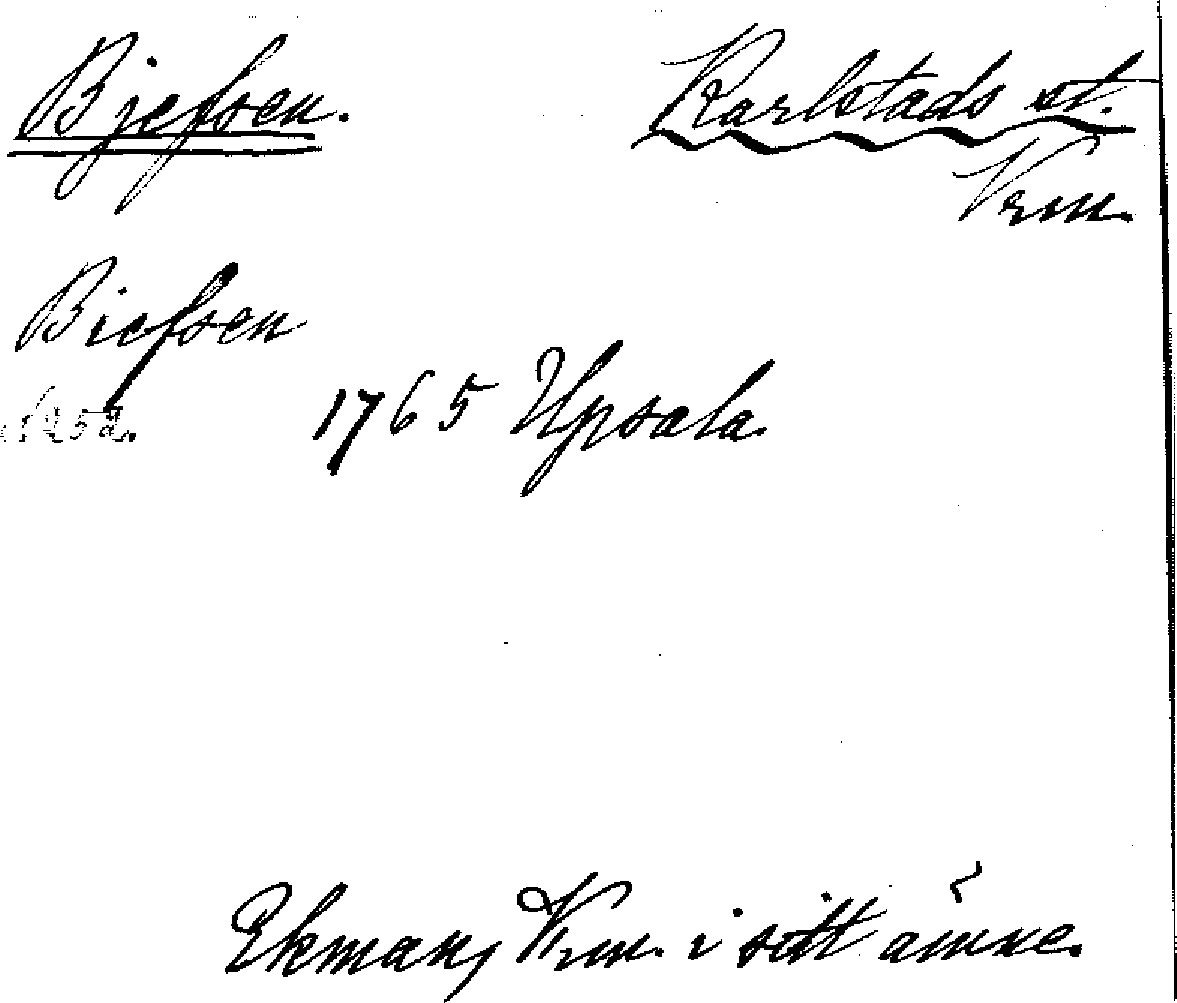 Bjefsen. Karlstads st.
Vrm.
Biefsen
1765 Upsala.
Ekman, Vrm. i sitt ämne.